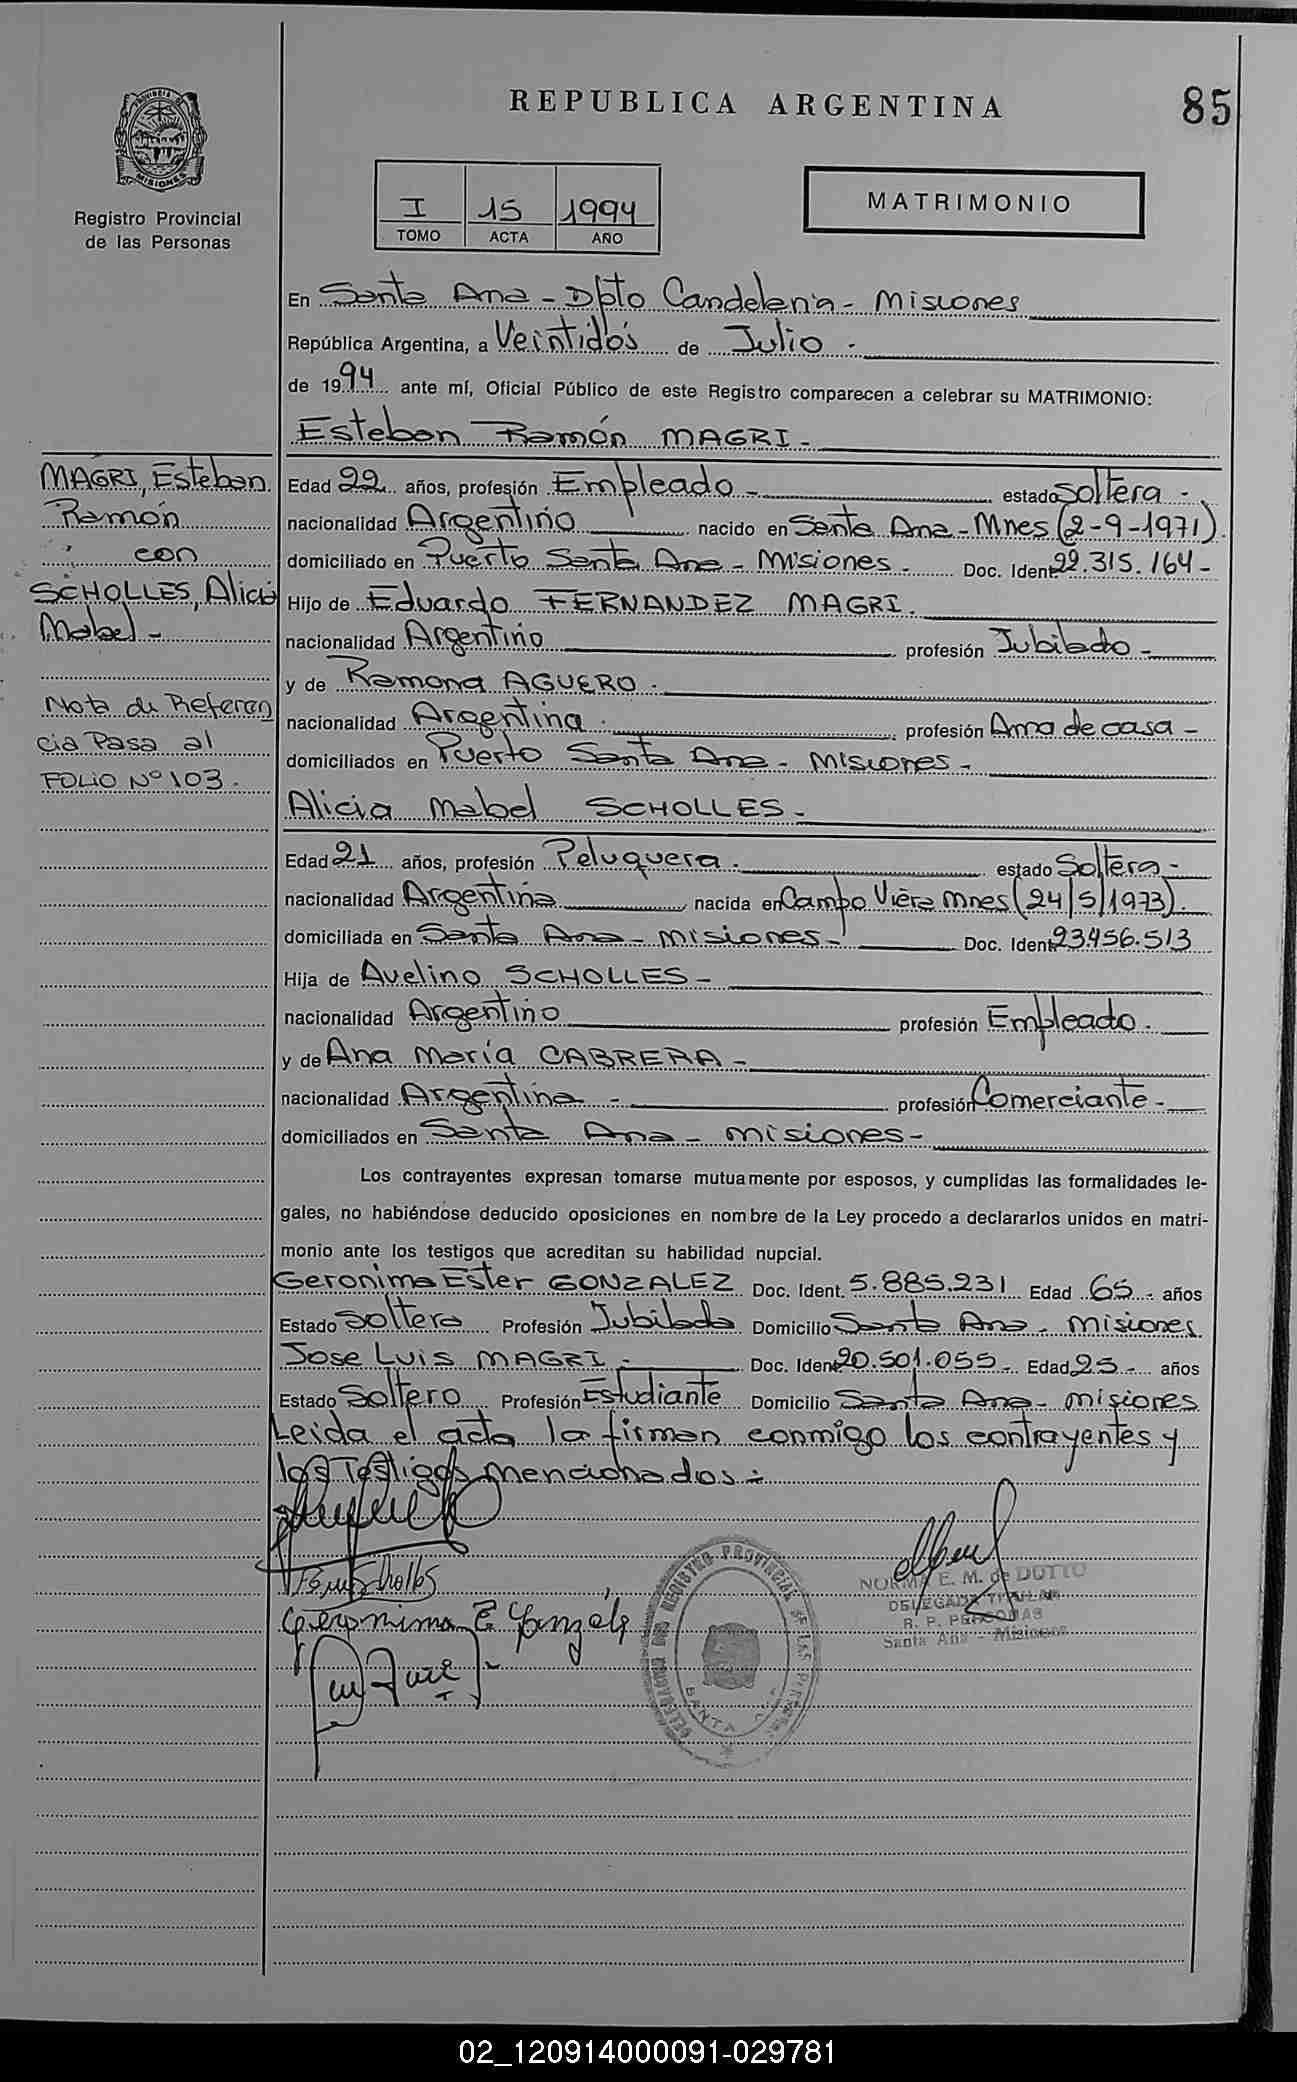 REPUBLICA ARGENTINA
85
PROVINCIA DE
MISIONES
Registro Provincial
de las Personas
I 15 1994
TOMO ACTA AÑO
MATRIMONIO
En Santa Ana - Dpto Candelaria - Misiones
República Argentina, a Veintidós de Julio -
de 1994 ante mí, Oficial Público de este Registro comparecen a celebrar su MATRIMONIO:
Esteban Ramón MAGRI -
MAGRI, Esteban
Ramón
con
SCHOLLES, Alicia
Mabel -
Nota de Referen
cia Pasa al
FOLIO Nº 103 -
Edad 22 años, profesión Empleado - estado soltera -
nacionalidad Argentino nacido en Santa Ana - Mnes (2-9-1971).
domiciliado en Puerto Santa Ana - Misiones - Doc. Ident. 22.315.164 -
Hijo de Eduardo FERNANDEZ MAGRI.
nacionalidad Argentino profesión Jubilado -
y de Ramona AGUERO -
nacionalidad Argentina - profesión Ama de casa -
domiciliados en Puerto Santa Ana - Misiones -
Alicia Mabel SCHOLLES -
Edad 21 años, profesión Peluquera - estado Soltera -
nacionalidad Argentina nacida en Campo Viera Mnes (24/5/1973).
domiciliada en Santa Ana - Misiones - Doc. Ident. 23.456.513
Hija de Avelino SCHOLLES -
nacionalidad Argentino profesión Empleado -
y de Ana María CABRERA -
nacionalidad Argentina - profesión Comerciante -
domiciliados en Santa Ana - Misiones -
Los contrayentes expresan tomarse mutuamente por esposos, y cumplidas las formalidades le-
gales, no habiéndose deducido oposiciones en nombre de la Ley procedo a declararlos unidos en matri-
monio ante los testigos que acreditan su habilidad nupcial.
Geronima Ester GONZALEZ Doc. Ident. 5.885.231 Edad 65 - años
Estado Soltera Profesión Jubilada Domicilio Santa Ana - Misiones
Jose Luis MAGRI - Doc. Ident. 20.501.055 - Edad 25 - años
Estado Soltero Profesión Estudiante Domicilio Santa Ana - Misiones
Leida el acta la firman conmigo los contrayentes y
los Testigos mencionados -
Geronima E Gonzalez
DELEGACION DEL REGISTRO PROVINCIAL DE LAS PERSONAS
SANTA ANA
NORMA E. M. de DOTTO
DELEGADA TITULAR
R. P. PERSONAS
Santa Ana - Misiones
02_120914000091-029781